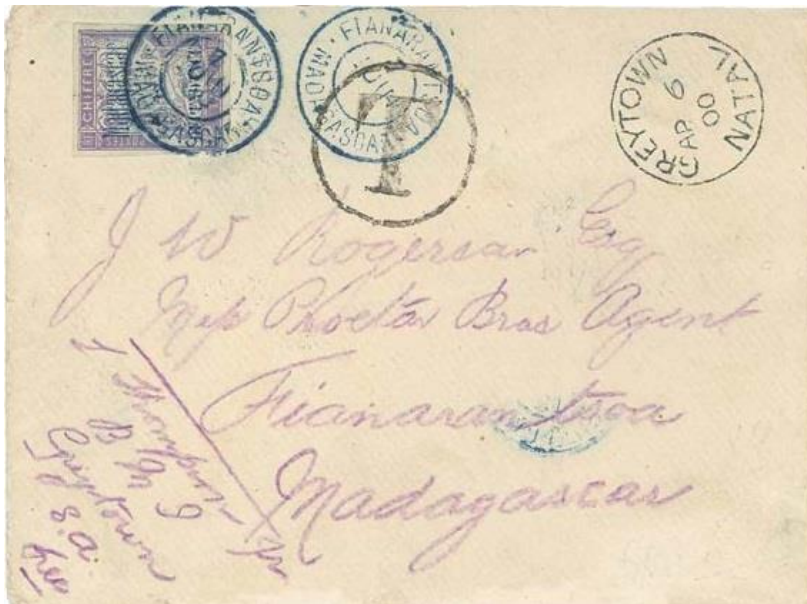 CHIFFRE
FIANARANTSOA
MADAGASCAR
FIANARANTSOA
MADAGASCAR
T
GREYTOWN
AP 6
00
NATAL
J W Rogerson Esq
Bros Agent
Fianarantsoa
Madagascar
J Thompson
B M I
Greytown
S.A.